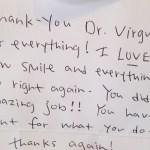 hank-you Dr. Virgu
r everything! I LOVE
n smile and everythin
right again. You did
azing job!! You have
nt for what you do
thanks again!